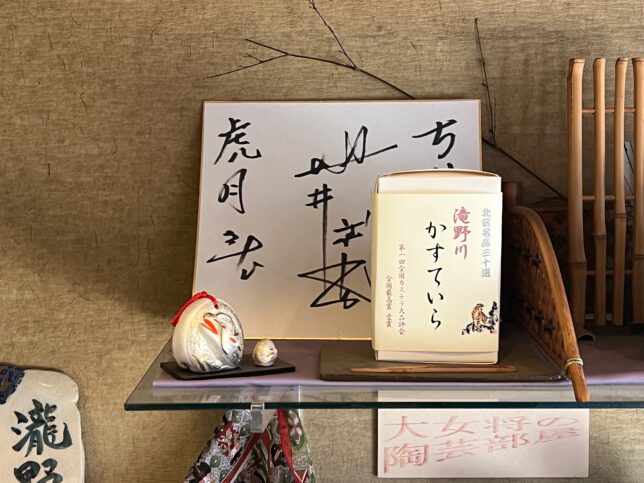 虎月
北区名品三十選
滝野川
かすていら
第一回全国カステラ大品評会
全国最高賞 受賞
瀧野
大女将の
陶芸部屋